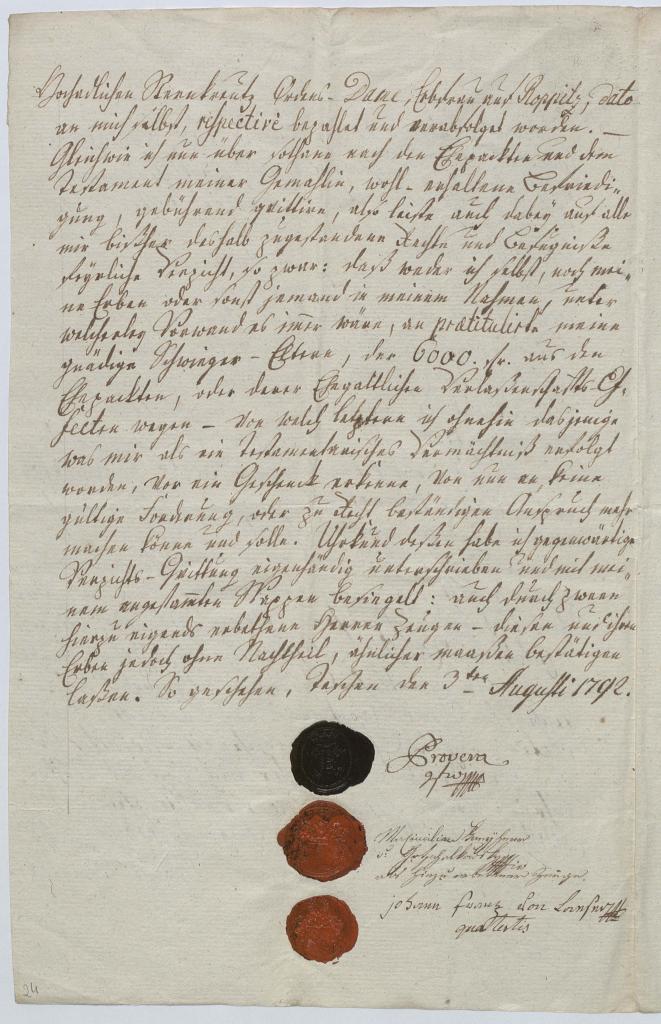 Hochadlichen Sternkreutz Ordens-Dame, Erbfrau auf Roppitz, dato
an mich selbst, respective bezahlet und verabfolget worden. —
Gleichwie ich nun über solhane nach den Ehepackten und dem
Testament meiner Gemahlin, wohl-erhaltene Befriedi-
gung, gebührend quittire, also leiste auch dabey auf alle
mir bißher deshalb zugestandene Rechte und Befugniße
feyrliche Verzicht, so zwar: daß weder ich selbst, noch mei-
ne Erben oder sonst jemand in meinem Nahmen, unter
welcherley Vorwand es immer wäre, an praetitulirte meine
gnädige Schwieger-Eltern, der 6000. fr. aus den
Ehepackten, oder derer Ehegattlichen Verlaßenschafts-Ef-
fecten wegen – von welch letztern ich ohnehin dasjenige
was mir als ein Testamentarisches Vermächtniß erfolgt
worden, vor ein Geschenk erkenne, von nun an, keine
gültige Forderung, oder zu Recht beständigen Anspruch mehr
machen könne und solle. Uhrkund deßen habe ich gegenwärtige
Verzichts-Quittung eigenhändig unterschrieben und mit mei-
nem angestammten Wappen besiegelt: auch durch zween
hierzu eigends erbethene Herren Zeugen – diesen und ihren
Erben jedoch ohne Nachtheil, ähnlicher maaßen bestätigen
laßen. So geschehen, Teschen den 3ten Augusti 1792.
Provera
Maximilian
als hiezu erbettener Zeuge.
Johann Franz von
qua Testis
24